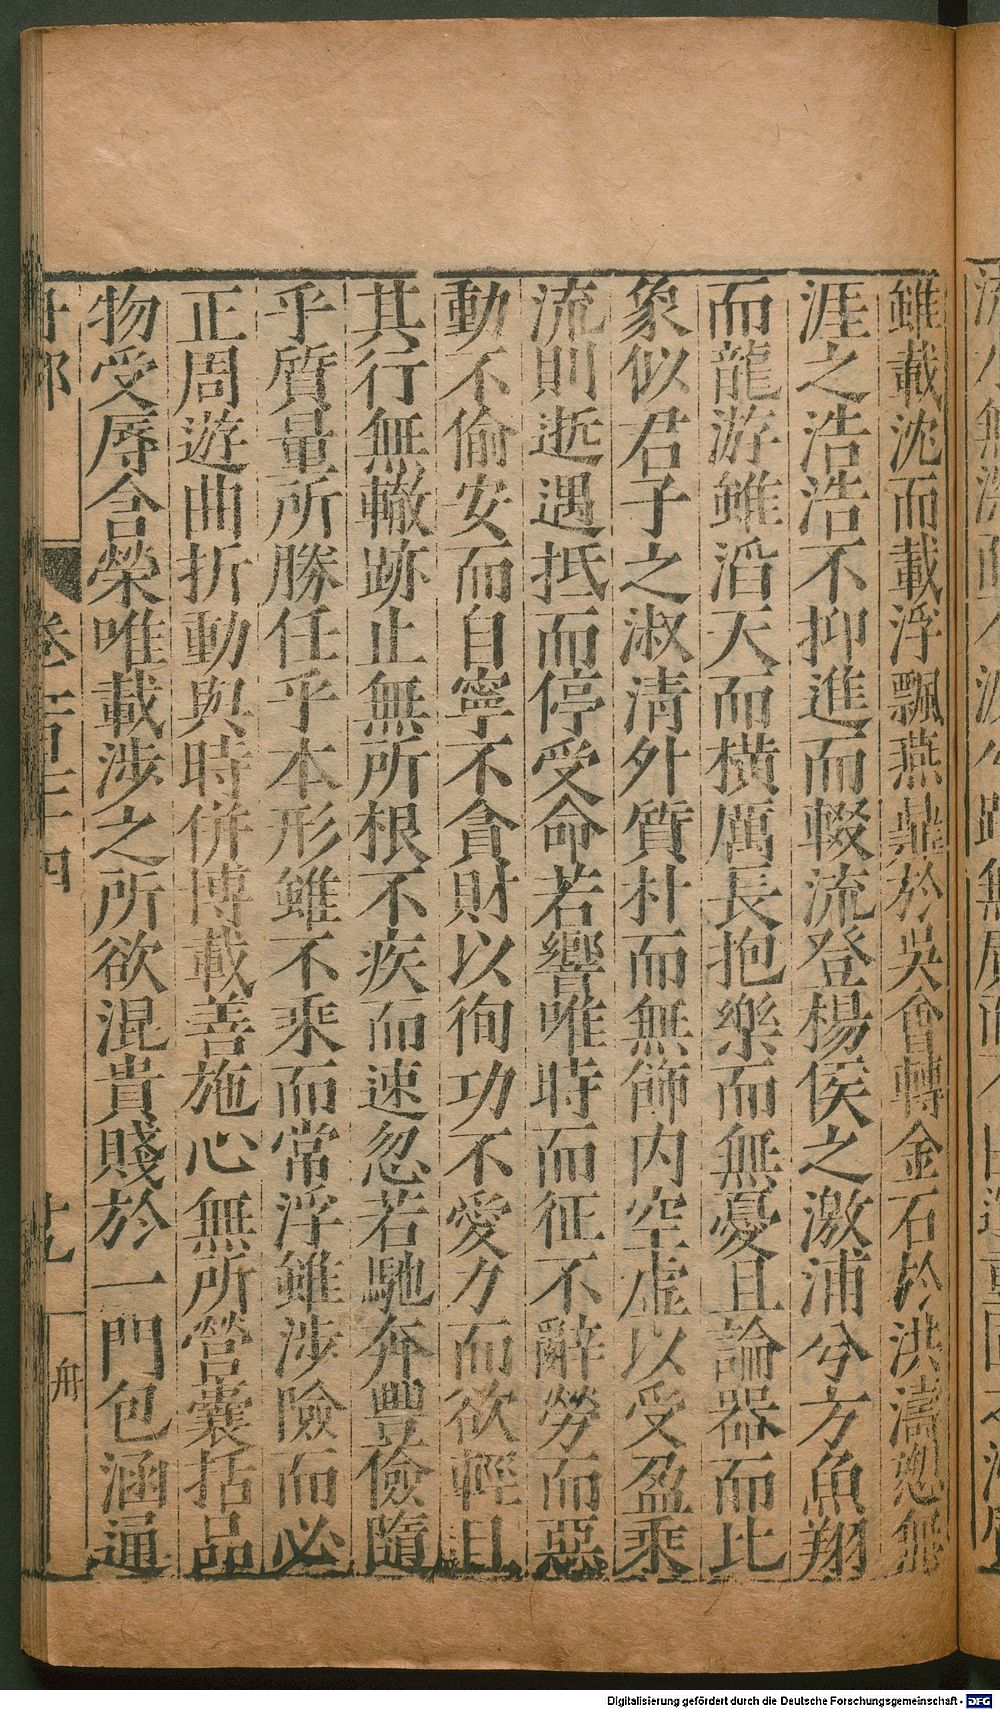 雖載沈而載浮飄燕鼎於吳會轉金石於洪濤忽無
涯之浩浩不抑進而輟流登楊侯之激浦兮方魚翔
而龍游雖滔天而橫厲長抱樂而無憂且論器而比
象似君子之淑清外質朴而無飾内空虛以受盈乘
流則逝遇抵而停受命若響唯時而征不辭勞而惡
動不偷安而自寧不貪財以徇功不愛力而欲輕且
其行無轍跡止無所根不疾而速忽若馳奔豐儉隨
乎質量所勝任乎本形雖不乘而常浮雖涉險而必
正周遊曲折動與時併博載善施心無所營囊括品
物受辱含榮唯載涉之所欲混貴賤於一門包涵通
卷一百三十四
廿九
舟
Digitalisierung gefördert durch die Deutsche Forschungsgemeinschaft - DFG